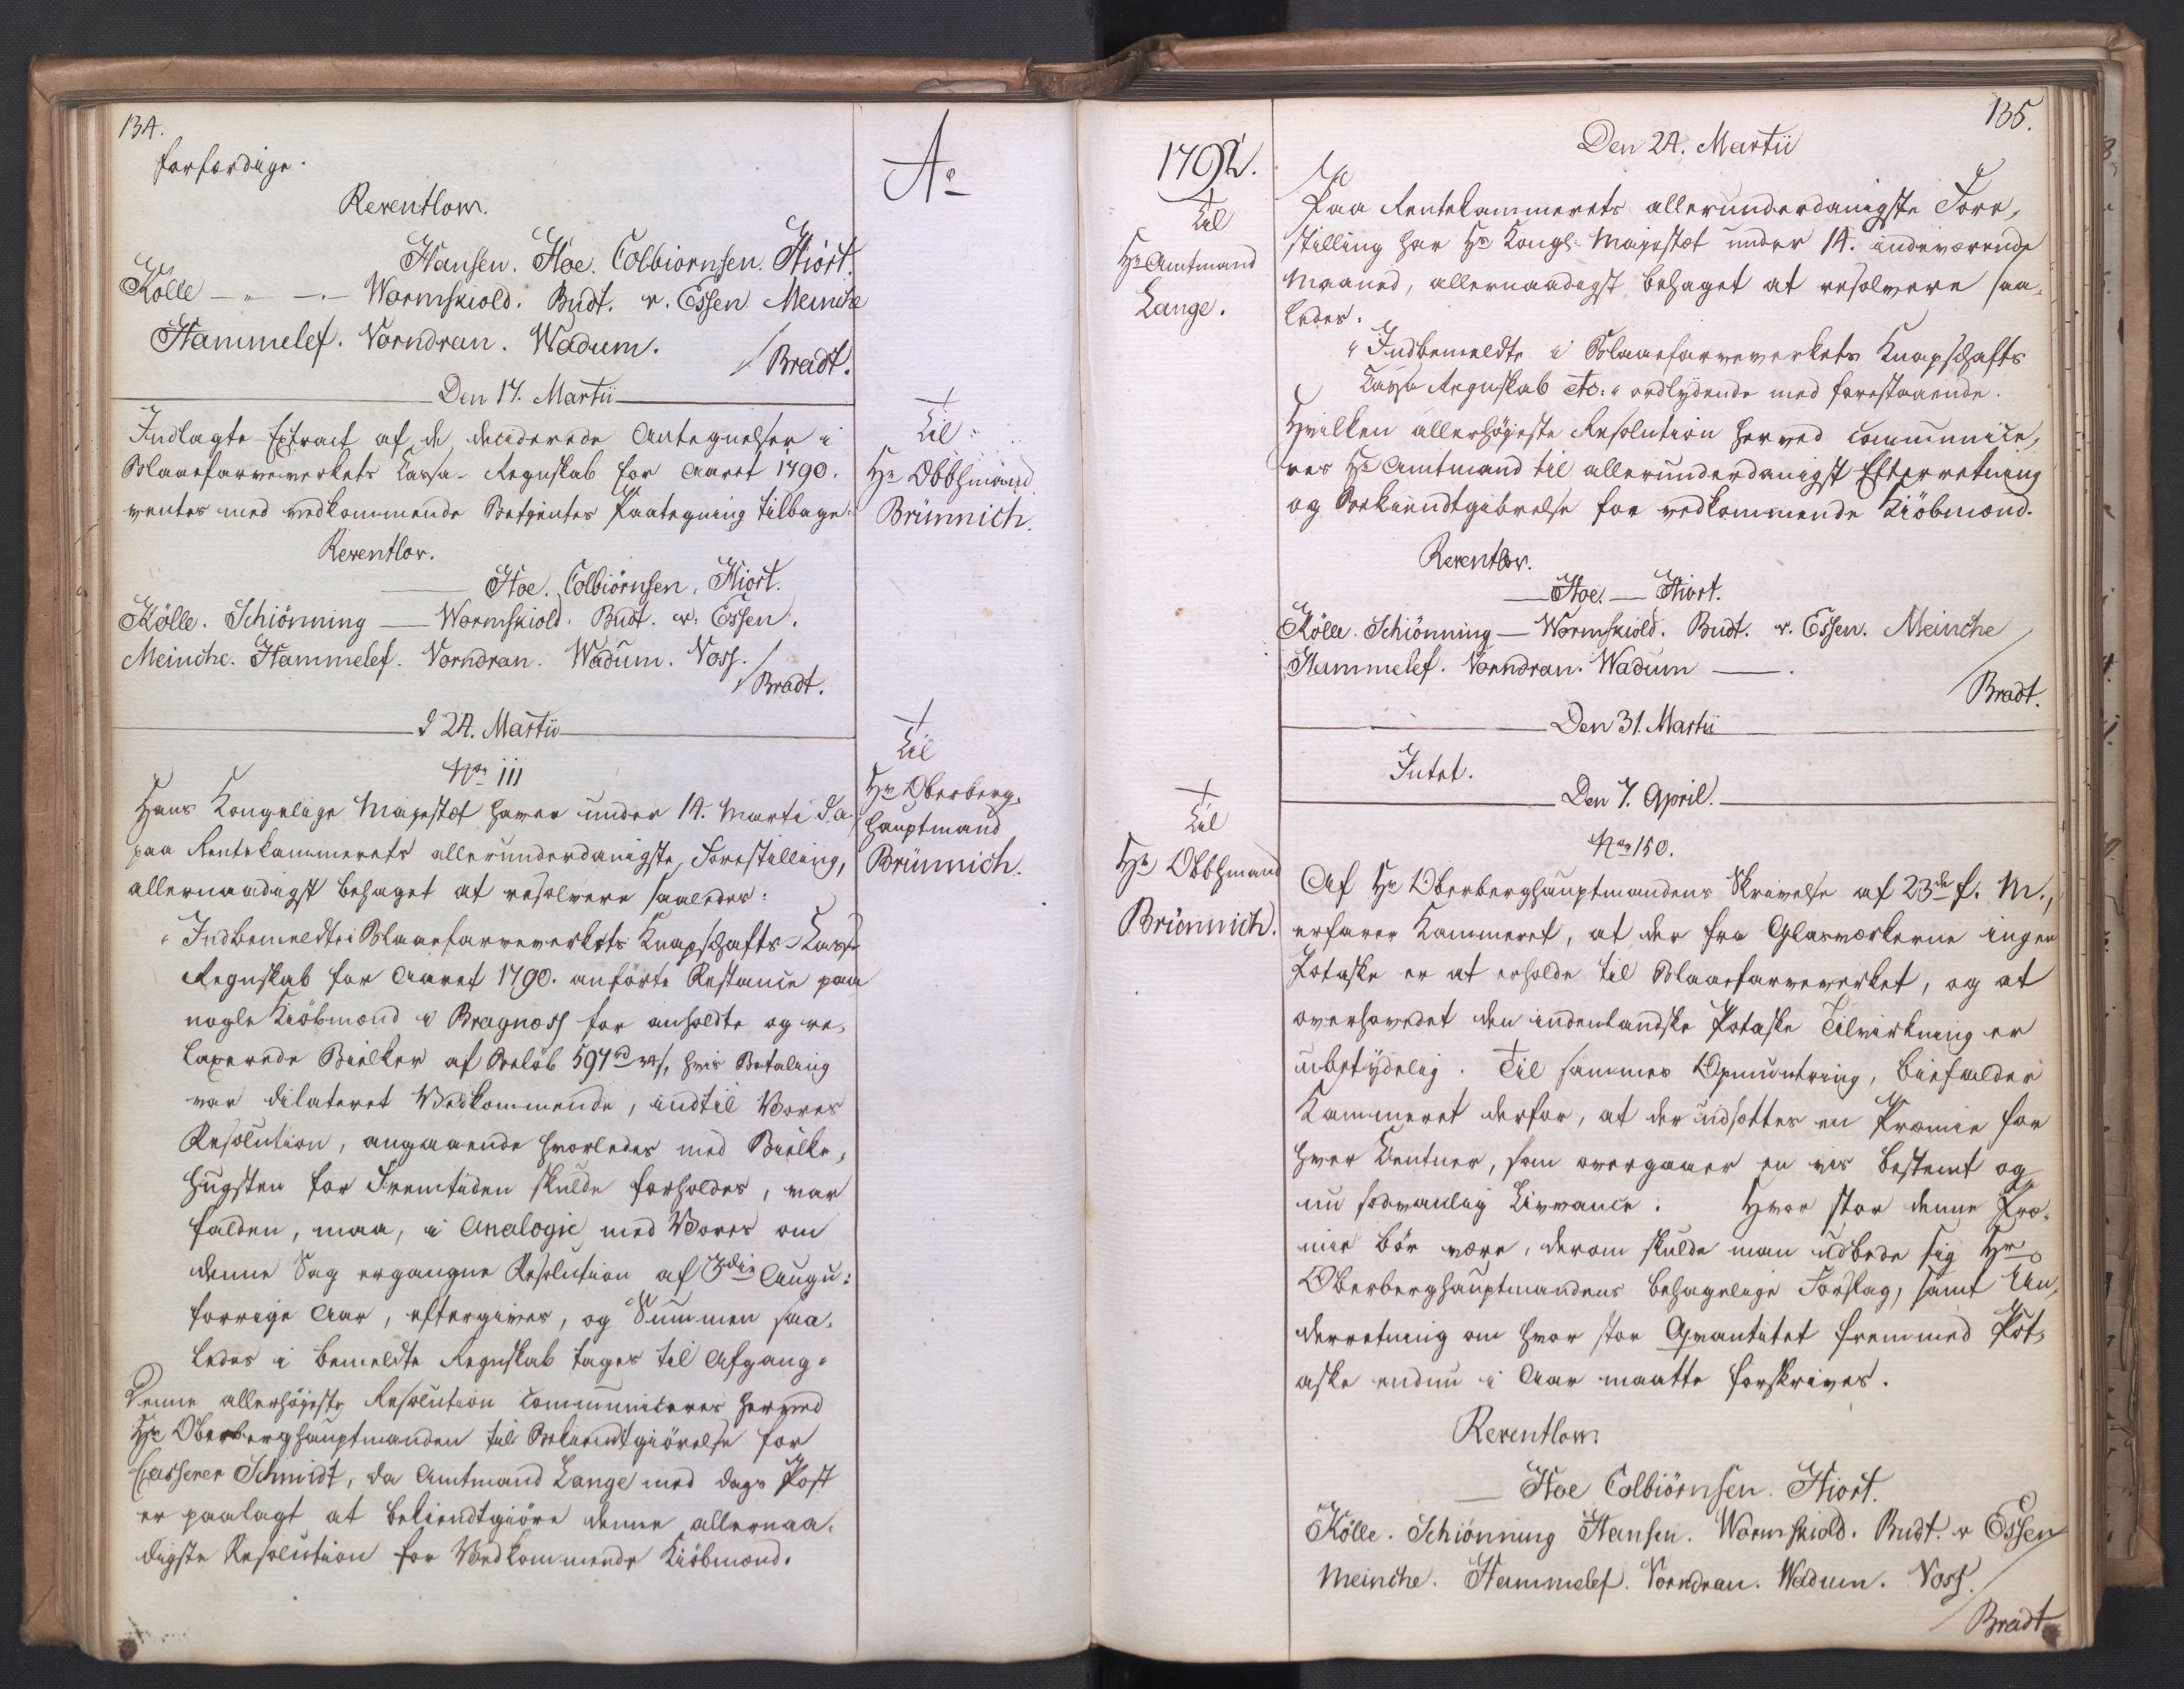 134.
forfærdige.
Reventlow.
Hansen. Hoe. Colbiørnsen. Hiort.
Kölle — „ — . — Wormskiold. Budt. v. Essen Meinche
Hammelef. Vorndran. Wadum.
/ Bradt.
Den 17. Martii
Indlagte Extract af de deciderede Antegnelser i
Blaaefarveverkets Cassa-Regnskab for Aaret 1790.
ventes med vedkommende Betjentes Paategning tilbage.
Reventlov.
Hoe. Colbiörnsen. Hiort.
Kölle. Schiönning — Wormskiold. Budt. v. Essen.
Meinche. Hammelef. Vorndran. Wadum. Voss.
/ Bradt.
d 24. Martii
No 111
Hans Kongelige Majestæt haver under 14. Marti d.a.
paa Rentekammerets allerunderdanigste Forestilling,
allernaadigst behaget at resolvere saaledes:
„Indbemeldte i Blaaefarveverkets Knapschafts-Cassa
Regnskab for Aaret 1790. anförte Restance paa
nogle Kiöbmænd i Bragnæss for anholdte og re-
laxerede Bielker af Belöb 597 rd 24 s, hvis Betaling
var dilateret Vedkommende, indtil Vores
Resolution, angaaende hvorledes med Bielke-
hugsten for Fremtiden skulde forholdes, var
falden, maa, i Analogie med Vores om
denne Sag ergangne Resolution af 3die Augu:
forrige Aar, eftergives, og Summen saa-
ledes i bemeldte Regnskab tages til Afgang.
Denne allerhöjeste Resolution communiceres herved
Hr Oberberghauptmanden til Bekiendtgiörelse for
Casserer Schmidt, da Amtmand Lange med dags Post
er paalagt at bekiendtgiöre denne allernaa-
digste Resolution for Vedkommende Kiöbmænd.
Ao
†
Til
Hr Obbhmand
Brünnich.
†
Til
Hr Oberberg-
hauptmand
Brünnich.
1792.
†
Til
Hr Amtmand
Lange.
†
Til
Hr Obbhmand
Brünnich.
135.
Den 24. Martii
Paa Rentekammerets allerunderdanigste Fore-
stilling har Hs Kongl. Majestæt under 14. indeværende
Maaned, allernaadigst behaget at resolvere saa-
ledes:
„Indbemeldte i Blaaefarveverkets Knapschafts
Cassa Regnskab etc: „ ordlydende med forestaaende.
Hvilken allerhöjeste Resolution herved communice-
res Hr Amtmand til allerunderdanigst Efterretning
og Bekiendtgiörelse for vedkommende Kiöbmænd.
Reventlov.
— Hoe. — Hiort.
Kölle. Schiönning — Wormskiold. Budt. v. Essen. Meinche
Hammelef. Vorndran. Wadum — .
/ Bradt.
Den 31. Martii
Intet.
Den 7. April.
No 150.
Af Hr Oberberghauptmandens Skrivelse af 23de f. M.,
erfarer Kammeret, at der fra Glasværkerne ingen
Potaske er at erholde til Blaaefarveverket, og at
overhovedet den indenlandske Potaske Tilvirkning er
ubetydelig. Til sammes Opmuntring, biefalder
Kammeret derfor, at der udsættes en Præmie for
hver Centner, som overgaaer en vis bestemt og
nu sædvanlig Livrance. Hvor stor denne Præ-
mie bör være, derom skulde man udbede sig Hr
Oberberghauptmandens behagelige Forslag, samt Un-
derretning om hvor stor Qvantitet fremmed Pot-
aske endnu i Aar maatte forskrives.
Reventlow.
— Hoe Colbiörnsen. Hiort.
Kölle. Schiönning Hansen. Wormskiold. Budt. v Essen
Meinche. Hammelef. Vorndran. Wadum. Voss.
/ Bradt